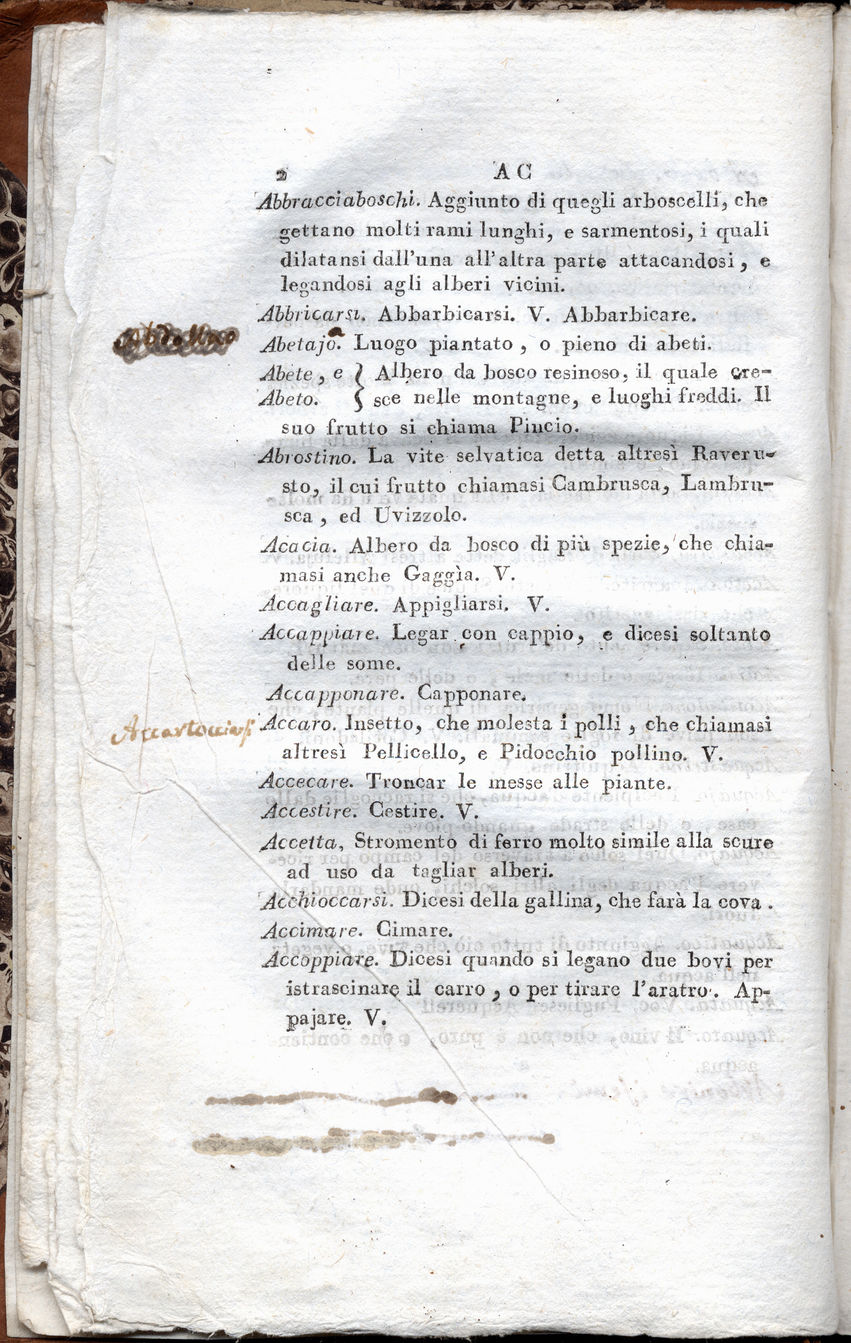 2 AC
Abbracciaboschi. Aggiunto di quegli arboscelli, che
gettano molti rami lunghi, e sarmentosi, i quali
dilatansi dall'una all'altra parte attacandosi, e
legandosi agli alberi vicini.
Abbricarsi. Abbarbicarsi. V. Abbarbicare.
Abetajo. Luogo piantato, o pieno di abeti.
Abete, e } Albero da bosco resinoso, il quale cre-
Abeto. } sce nelle montagne, e luoghi freddi. Il
suo frutto si chiama Pincio.
Abrostino. La vite selvatica detta altresì Raveru-
sto, il cui frutto chiamasi Cambrusca, Lambru-
sca, ed Uvizzolo.
Acacia. Albero da bosco di più spezie, che chia-
masi anche Gaggìa. V.
Accagliare. Appigliarsi. V.
Accappiare. Legar con cappio, e dicesi soltanto
delle some.
Accapponare. Capponare.
Accartocciarsi
Accaro. Insetto, che molesta i polli, che chiamasi
altresì Pellicello, e Pidocchio pollino. V.
Accecare. Troncar le messe alle piante.
Accestire. Cestire. V.
Accetta, Stromento di ferro molto simile alla scure
ad uso da tagliar alberi.
Acchioccarsi. Dicesi della gallina, che farà la cova.
Accimare. Cimare.
Accoppiare. Dicesi quando si legano due bovi per
istrascinare il carro, o per tirare l'aratro. Ap-
pajare. V.